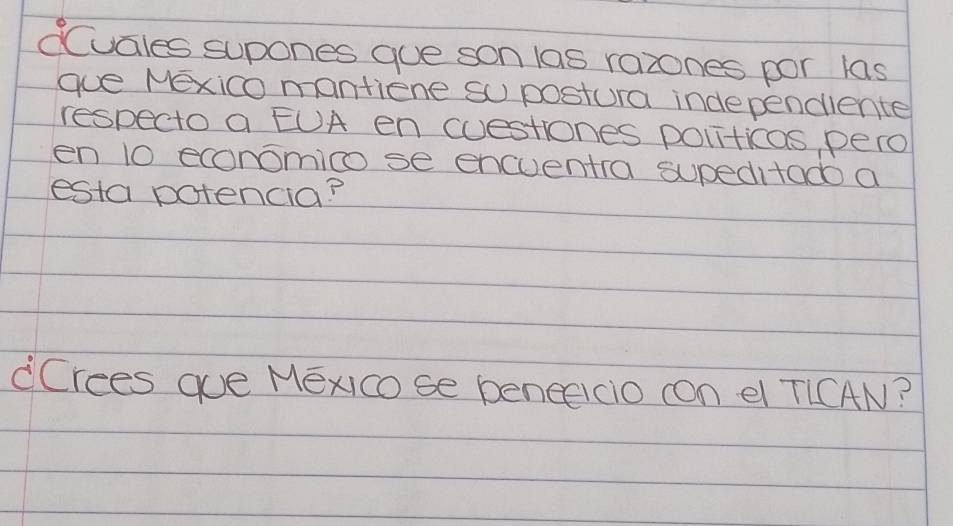 ¿Cuáles supones que son las razones por las
que México mantiene su postura independiente
respecto a EUA en cuestiones políticas, pero
en lo económico se encuentra supeditado a
esta potencia?
¿Crees que México se beneficio con el TLCAN?